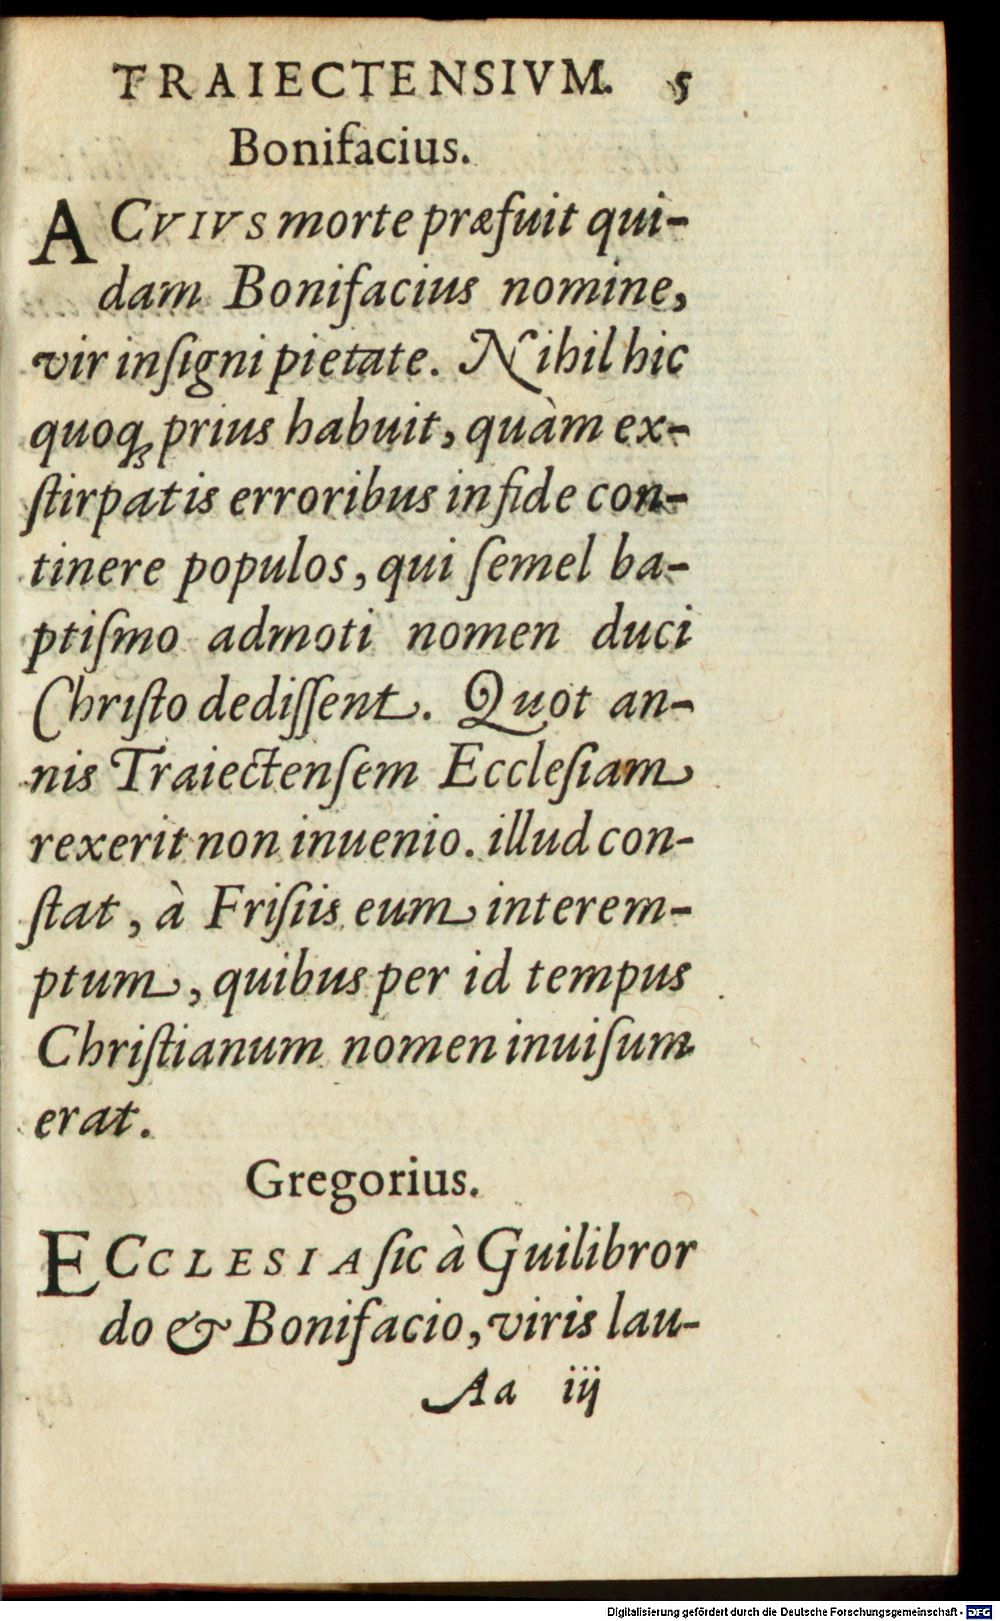 TRAIECTENSIVM. 5
Bonifacius.
A CVIVS morte præfuit qui-
dam Bonifacius nomine,
vir inſigni pietate. Nihil hic
quoqꝫ prius habuit, quàm ex-
ſtirpatis erroribus in fide con-
tinere populos, qui ſemel ba-
ptiſmo admoti nomen duci
Chriſto dediſſent. Quot an-
nis Traiectenſem Eccleſiam
rexerit non inuenio. illud con-
ſtat, à Friſiis eum interem-
ptum, quibus per id tempus
Chriſtianum nomen inuiſum
erat.
Gregorius.
ECCLESIA ſic à Guilibror
do & Bonifacio, viris lau-
Aa iij
Digitalisierung gefördert durch die Deutsche Forschungsgemeinschaft - DFG